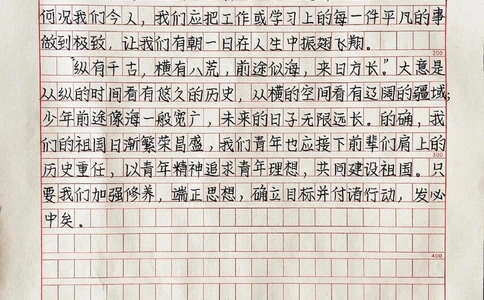 何况我们今人，我们应把工作或学习上的每一件平凡的事
做到极致，让我们有朝一日在人生中振翅飞翔。
200
“纵有千古，横有八荒，前途似海，来日方长。”大意是
从纵的时间看有悠久的历史，从横的空间看有辽阔的疆域；
少年前途像海一般宽广，未来的日子无限远长。的确，我
们的祖国日渐繁荣昌盛，我们青年也应接下前辈们肩上的
300
历史重任，以青年精神追求青年理想，共同建设祖国。只
要我们加强修养，端正思想，确立目标并付诸行动，发必
中矣。
400